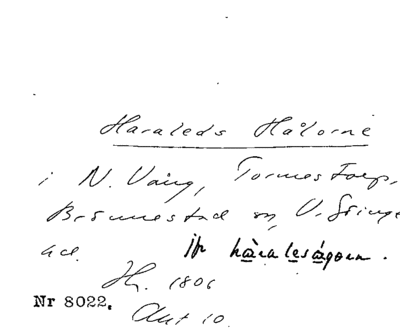 Haraleds Hålorne
i N. Vång, Tormestorp,
Brönnestad sn, V. Göinge
hd. jfr hàralesågorn.
Jh. 1806
Nr 8022. Akt 10.